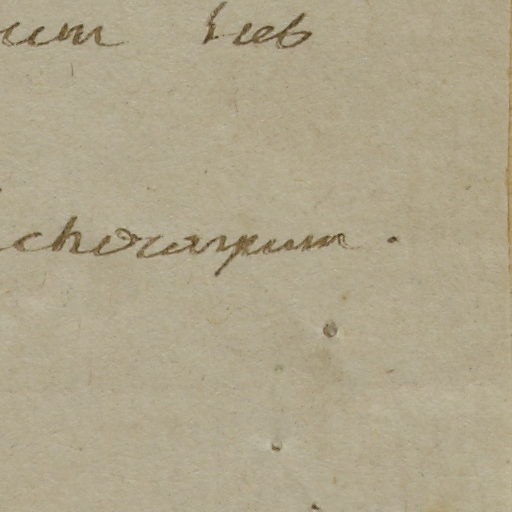 um lieb
chorarpum.